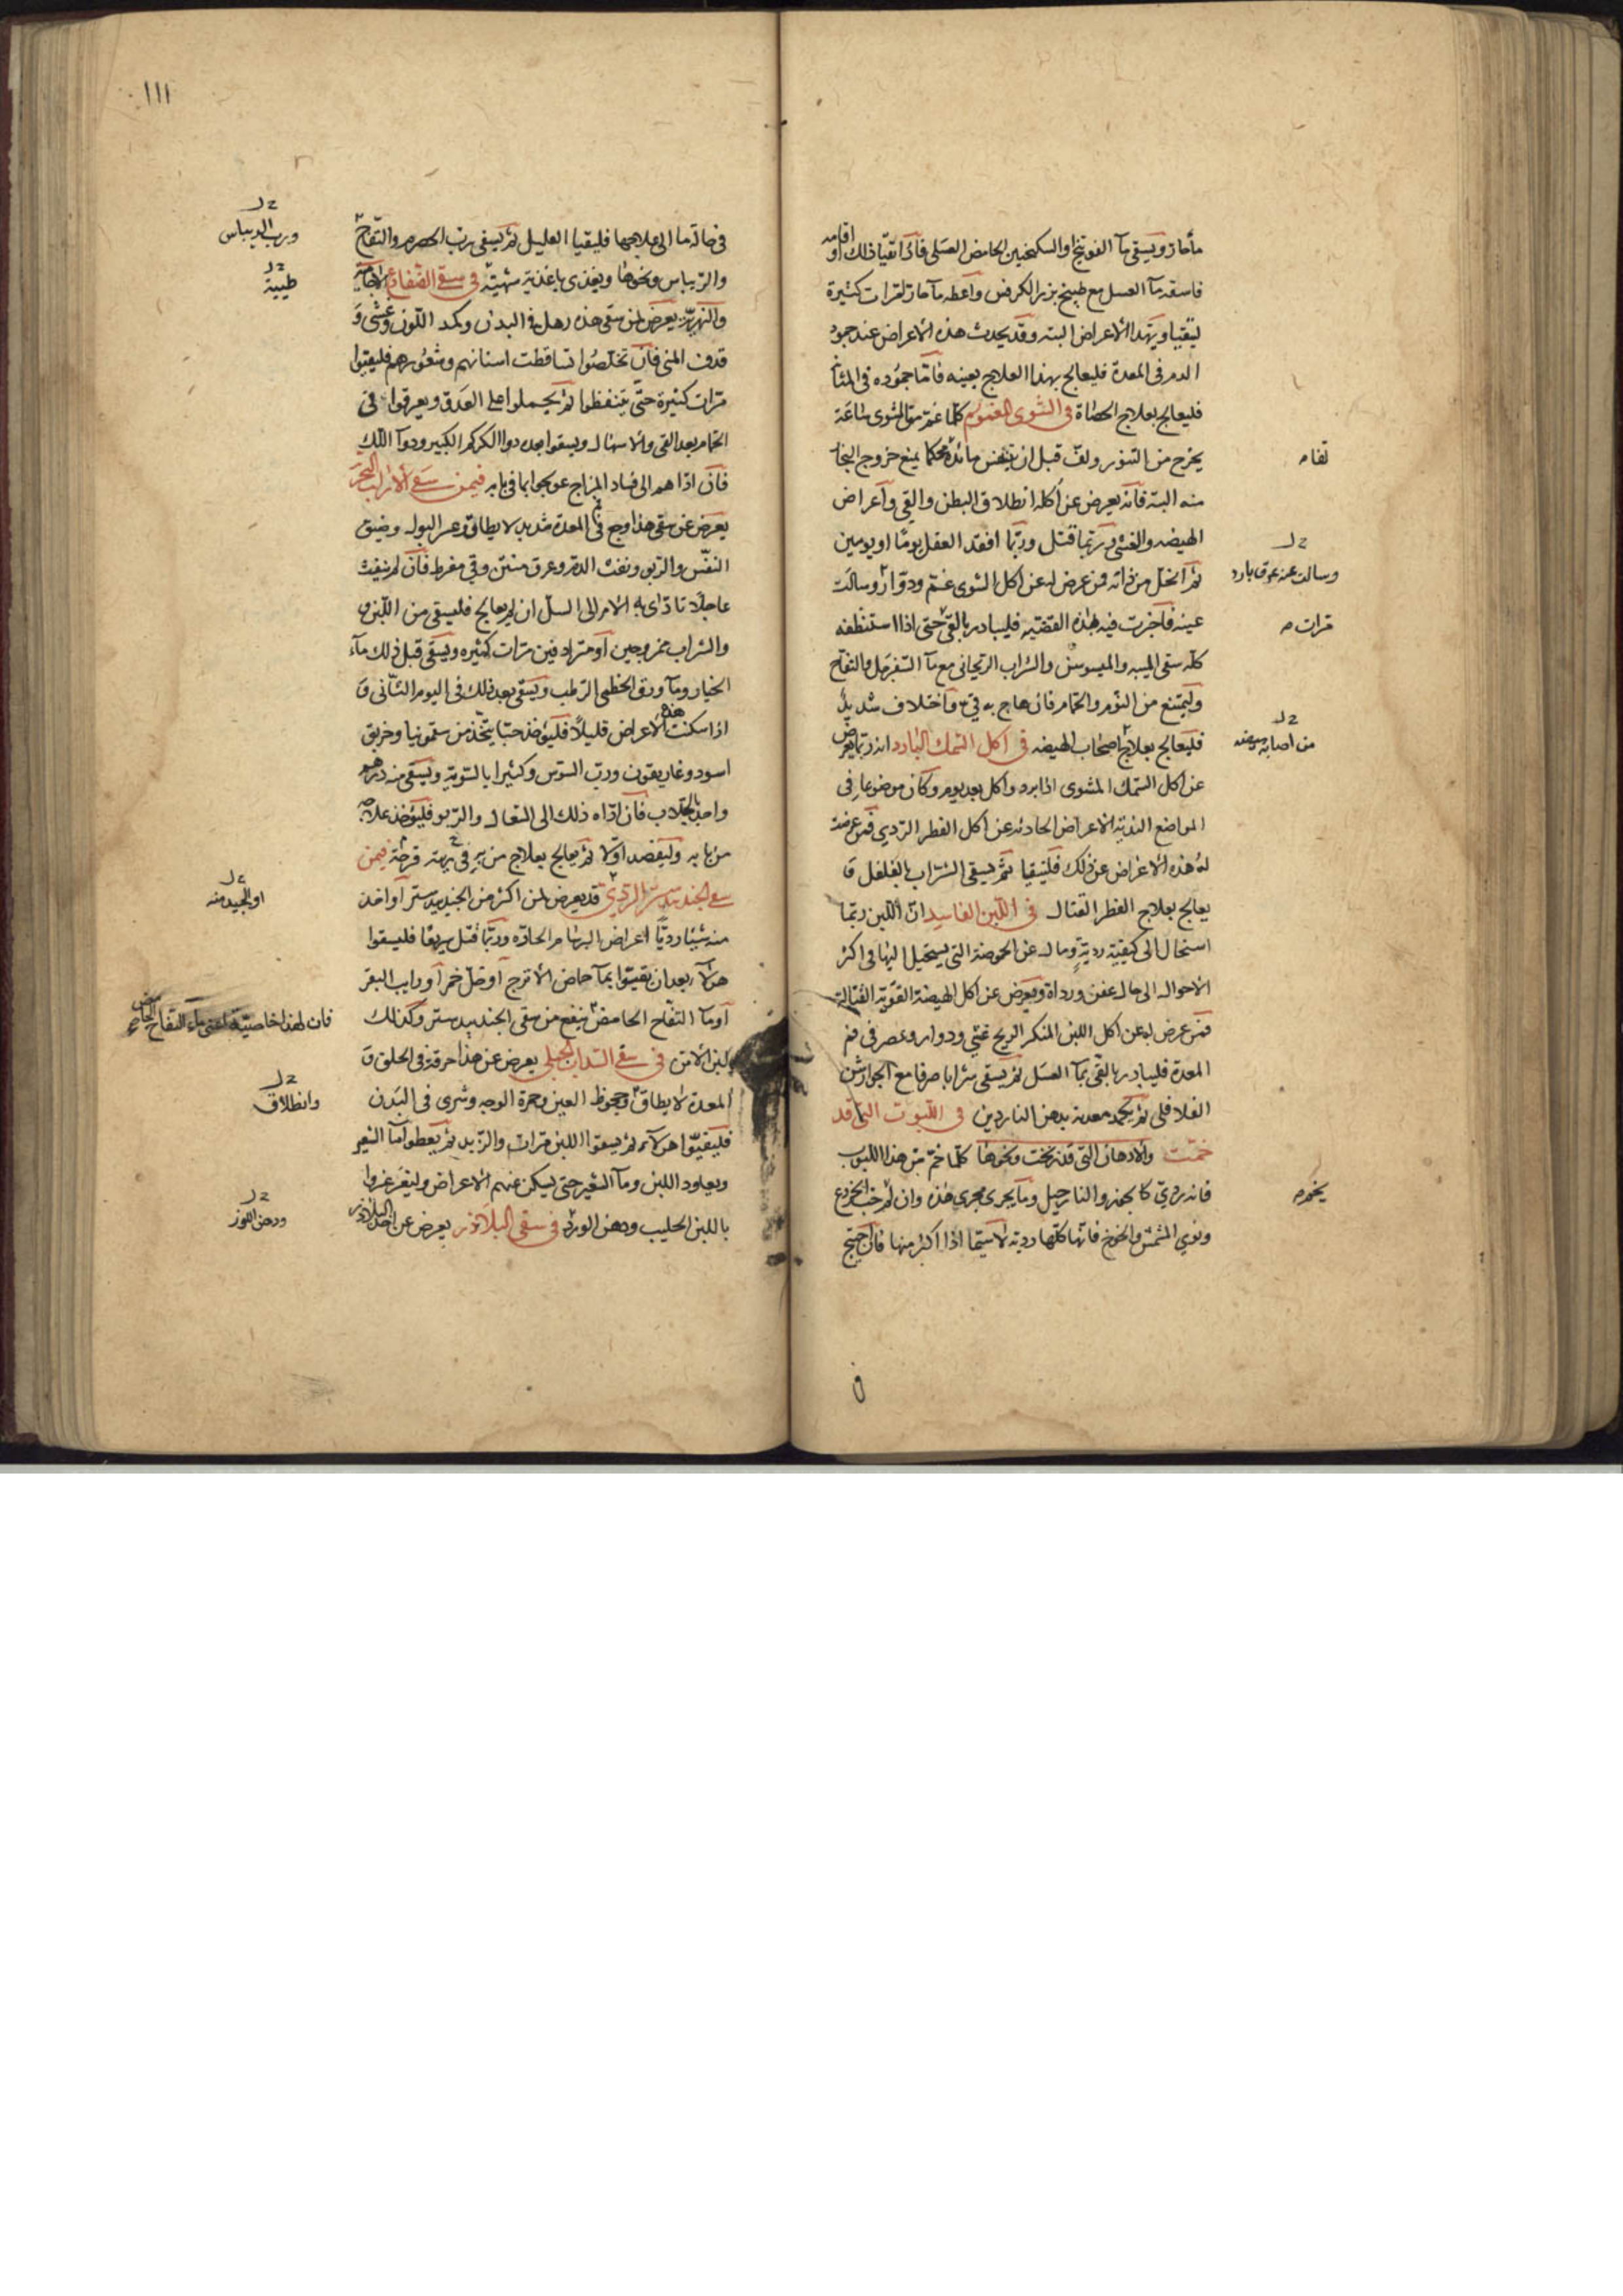 مآ حار ويسقى مآ الفوتنج او السكنجبين الحامض العسلى فاذا تقيأ ذلك او اقامه
فاسقه مآ العسل مع طبيخ بزر الكرفس واعطه مآ حار لمرات كثيرة
ليتقيأ ويهدا الاعراض البته وقد يحدث هذه الاعراض عند جمود
الدم فى المعدة فليعالج بهذا العلاج بعينه فاما جموده فى المثانة
فليعالج بعلاج الحصاة فى الشوى المغموم كلما غم من الشوى ساعة
يخرج من التنور ولف قبل ان يتنفس محكما يمنع خروج البخار
منه البته فانه يعرض عن اكله انطلاق البطن والقى واعراض
الهيضه والغشى وربما قتل وربما افقد العقل يوما او يومين
ثم انحل من ذاته فمن عرض له عن اكل الشوى غم ودوار وسالت
عينه فليبادر بالقى حتى اذا استنظفه
كله سقى الميبه والميسوس والشراب الريحانى مع مآ السفرجل والتفاح
وليمتنع من النوم والحمام فان هاج به قى واختلاف شديد
فليعالج بعلاج اصحاب الهيضه فى اكل السمك البارد انه ربما يعرض
عن اكل السمك المشوى اذا برد واكل بعد يوم وكان موضوعا فى
المواضع الندية الاعراض الحادثه عن اكل الفطر الردى فمن عرضت
له هذه الاعراض عن ذلك فليتقيا ثم يسقى الشراب بالفلفل و
يعالج بعلاج الفطر القتال فى اللبن الفاسد ان اللبن ربما
استحال الى كيفية ردية ومال عن الحموضة التى يستحيل اليها فى اكثر
الاحوال الى حال عفن ورداة ويعرض عن اكل الهيضة القوية القتالة
فمن عرض له عن اكل اللبن المنكر الريح غثى ودوار وعصر فى فم
المعدة فليبادر بالقى بمآ العسل ثم يسقى شرابا صرفا مع الجوارشن
الفلافلى ثم يكمد معدته بدهن الناردين فى اللبوب التى قد
خمت والادهان التى قد زنخت ونحوها كلما خم من هذا اللبوب
فانه ردى كالجوز والنارجيل وما يجرى مجرى هذه وان لم حب الخروع
ونوى المشمش والخوخ فانها كلها ردية لا سيما اذا اكثر منها فان احتيج
لفاه
وسالت عنه عرق بارد
مرات
من اصابه هيضه
١١١
فى حال ما الى علاجها فليقيا العليل ثم يسقى رب الحصرم والتفاح
والريباس ونحوها ويغذى باغذية شهية فى سقى الضفادع الاجامية
والنهرية يعرض لمن سقى هذه رهل فى البدن وكمد اللون وغشى و
قذف المنى فان تخلصوا تساقطت اسنانهم وشعورهم فليقيوا
مرات كثيرة حتى يتنظفوا ثم يحملوا على العدو ويعرقوا فى
الحمام بعد القى والاسهال ويسقوا بعد دوا الكركم الكبير ودوآ اللك
فان اداهم الى فساد المزاج عولجوا بما فى بابه فيمن سقى الارنب البحرى
يعرض عن سقى هذا وجع فى المعدة شديد لا يطاق وعسر البول وضيق
النفس والربو ونفث الدم وعرق منتن وقى مفرط فان لم
عاجلا تادى به الامر الى السل ان لم يعالج فليسقى من اللبن
والشراب ممزوجين او مترادفين مرات كثيره ويسقى قبل ذلك مآء
الخيار ومآ ورق الخطمى الرطب ويسقى بعد ذلك فى اليوم الثانى و
اذا سكنت هذه الاعراض قليلا فليؤخذ حبا يتخذ من سقمونيا وخربق
اسود وغاريقون ورب السوس وكثيرا بالسوية ويسقى منه درهم
واحد بالجلاب فان اداه ذلك الى السعال والربو فليؤخذ علاجه
من بابه وليفصد اولا ثم يعالج بعلاج من به فى ريته قرحة فيمن
سقى الجندبيدستر الردى قد يعرض لمن اكثر من الجندبيدستر او اخذ
منه شيئا رديا اعراض البرسام الحاده وربما قتل سريعا فليسقوا
هولآء بعد ان تقيئوا بمآ حماض الاترج او خل خمر او رايب البقر
او مآ التفاح الحامض ينفع من سقى الجندبيدستر وكذلك
لبن الاتن فى سقى السذاب الجبلى يعرض عن هذا حرقة فى الحلق و
المعدة لا يطاق وجحوظ العين وحمرة الوجه وشرى فى البدن
فليقيوا هولآء ثم يسقوا اللبن مرات والزبد ثم يعطوا مآ الشعير
ويعاود اللبن ومآ الشعير حتى يسكن عنهم الاعراض وليغرغروا
باللبن الحليب ودهن الورد فى سقى البلاذر يعرض عن اخذ البلاذر
ورب الريباس
طيبة
او الجيد منه
فان لهذا خاصية اعنى ماء التفاح الحامض
وانطلاق
ودهن اللوز